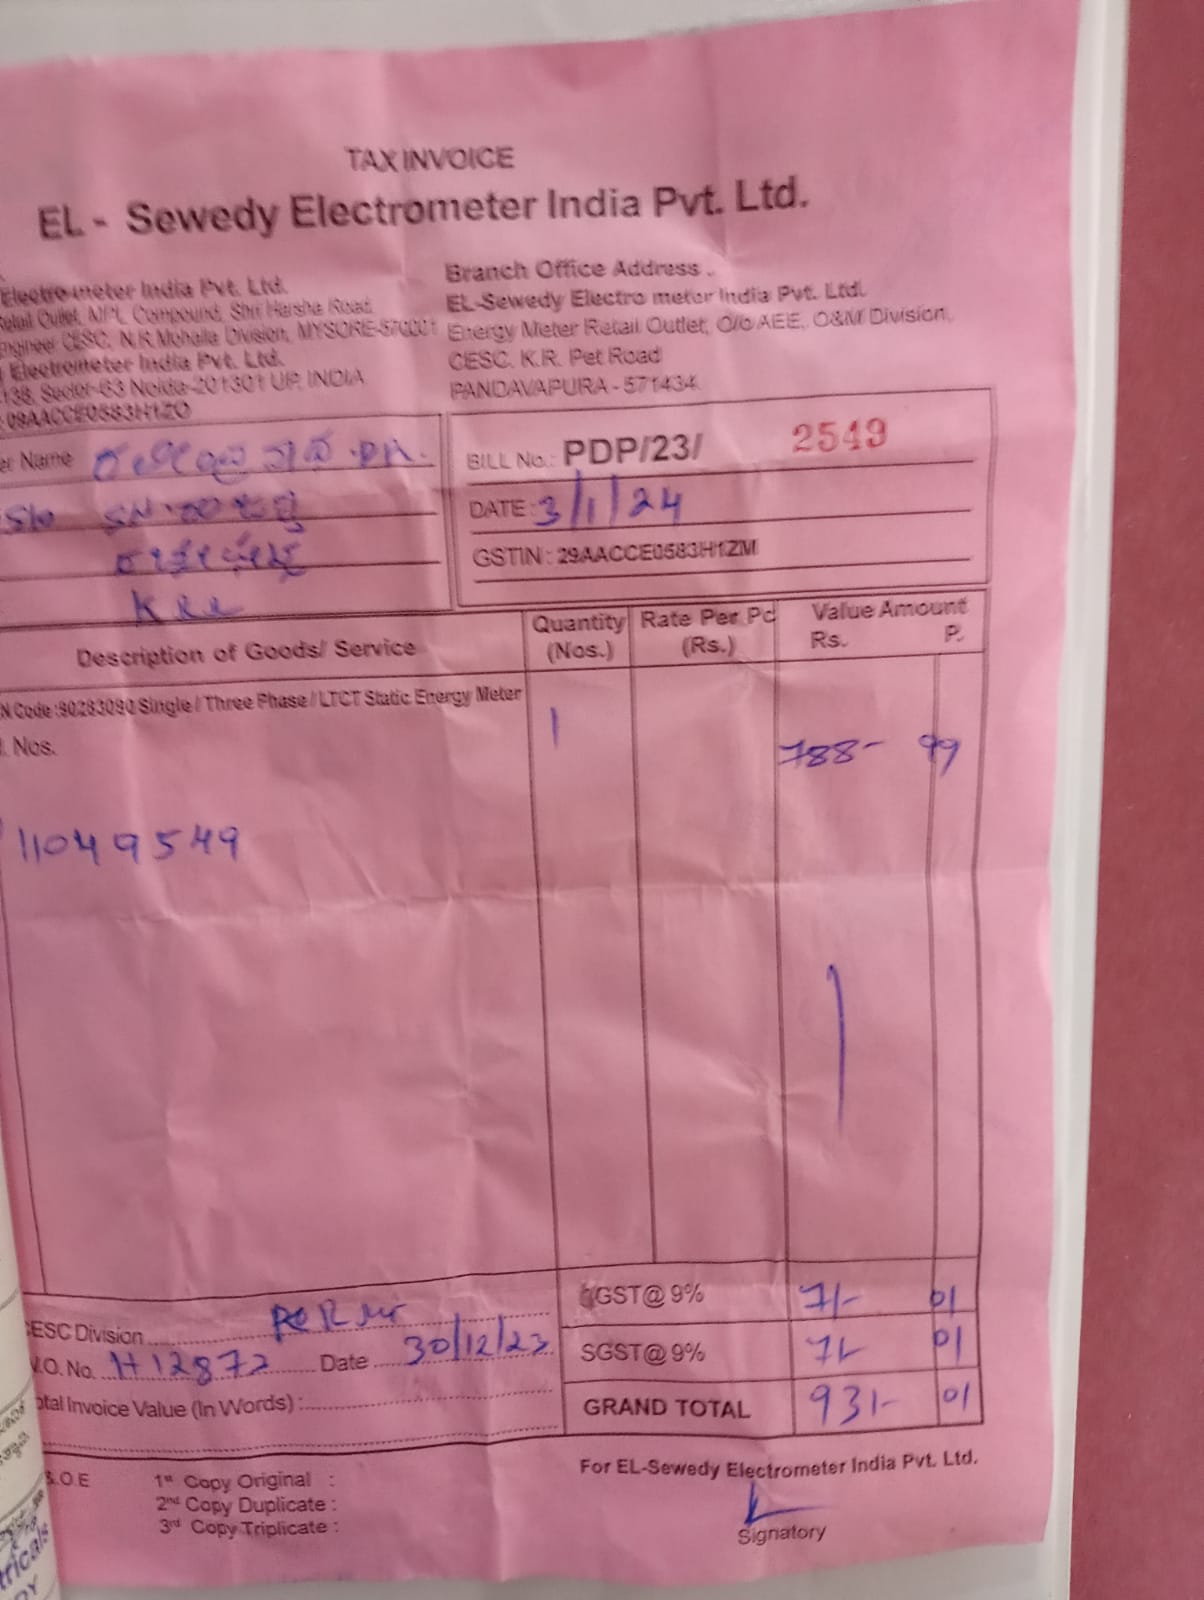 TAX INVOICE
EL - Sewedy Electrometer India Pvt. Ltd.
Electro meter India Pvt. Ltd.
Retail Outlet, MPL Compound, Shri Harsha Road,
Engineer CESC, N.R.Mohalla Division, MYSORE-570001
Electrometer India Pvt. Ltd.
138, Sector-63 Noida-201301 UP, INDIA
09AACCE0583H1ZO
Branch Office Address .
EL-Sewedy Electro meter India Pvt. Ltd.
Energy Meter Retail Outlet, O/o AEE, O&M Division,
CESC. K.R. Pet Road
PANDAVAPURA - 571434.
er Name
BILL No.: PDP/23/ 2549
DATE : 3/1/24
GSTIN : 29AACCE0583H1ZM
Description of Goods/ Service
Quantity (Nos.)
Rate Per Pc (Rs.)
Value Amount
Rs. P.
N Code :90283090 Single / Three Phase / LTCT Static Energy Meter
. Nos.
1
788- 99
11049549
GST@ 9% 71- 01
SGST@ 9% 71- 01
GRAND TOTAL 931- 01
CESC Division
.O. No. 12872 Date 30/12/23
otal Invoice Value (In Words) :
.O.E
1st Copy Original :
2nd Copy Duplicate :
3rd Copy Triplicate :
For EL-Sewedy Electrometer India Pvt. Ltd.
Signatory